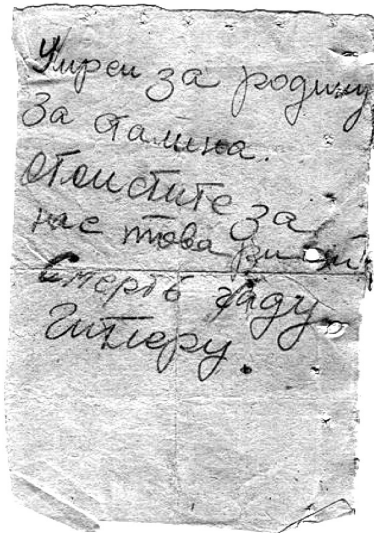 Умрем за родину
За сталина.
отомстите за
нас товарищи
Смерть гаду
Гитлеру.